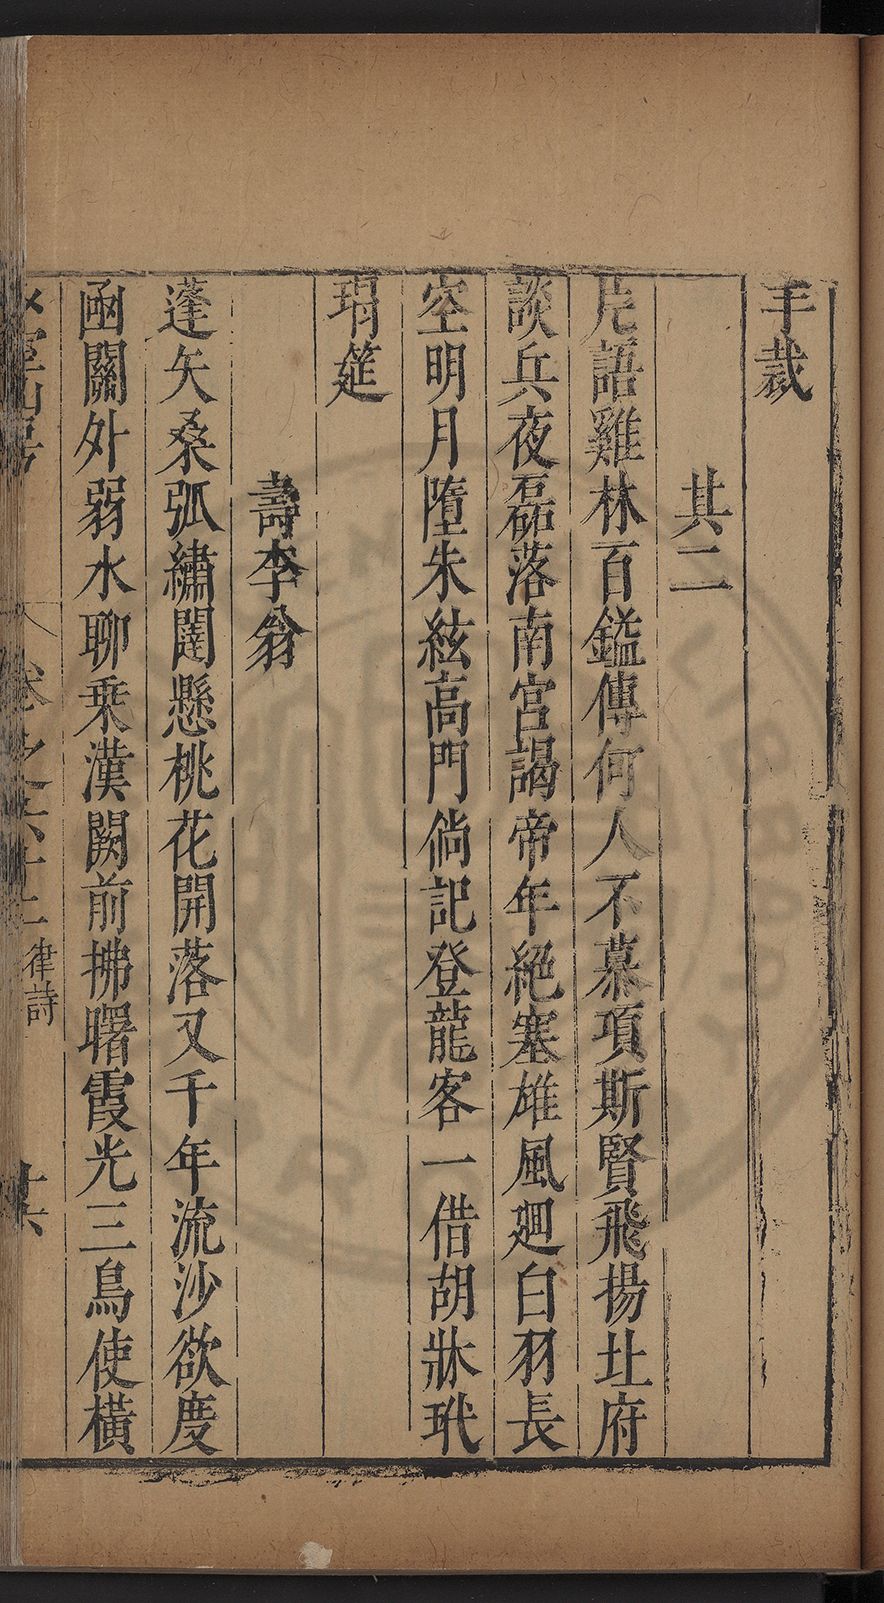 手裁
其二
片語雞林百鎰傳何人不慕項斯賢飛揚北府
談兵夜磊落南宫謁帝年絕塞雄風廻白羽長
空明月墮朱絃高門倘記登龍客一借胡牀玳
瑁筵
壽李翁
蓬矢桑弧繡闥懸桃花開落又千年流沙欲度
函關外弱水聊乗漢闕前拂曙霞光三鳥使橫
卷之六十二 律詩